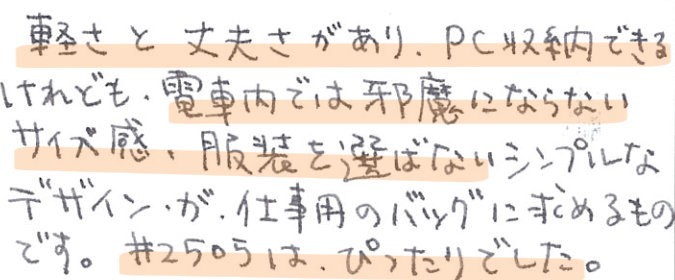 軽さと丈夫さがあり、PC収納できる
けれども、電車内では邪魔にならない
サイズ感、服装を選ばないシンプルな
デザイン・が、仕事用のバッグに求めるもの
です。#2505は、ぴったりでした。